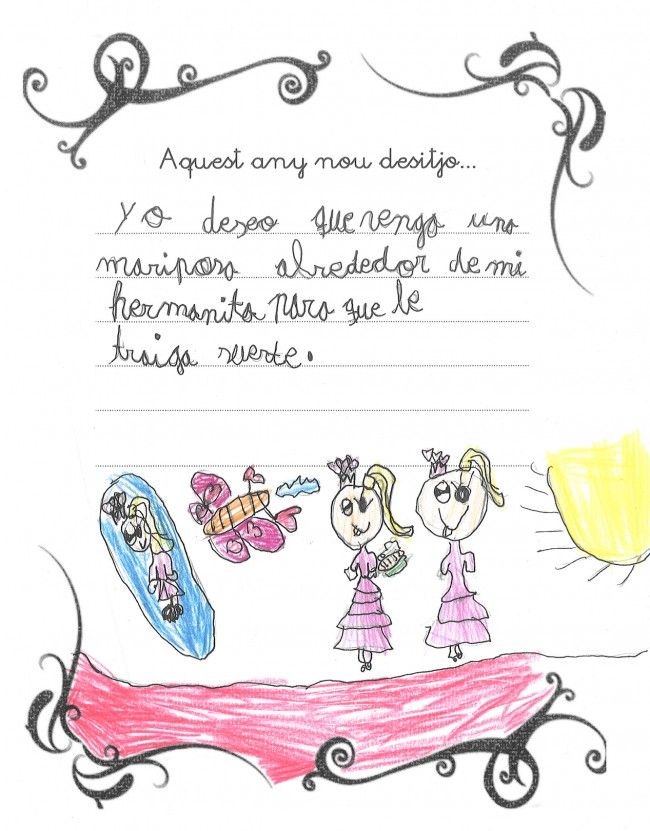 Aquest any nou desitjo...
Yo deseo que venga una
mariposa alrededor de mi
hermanita para que le
traiga suerte.